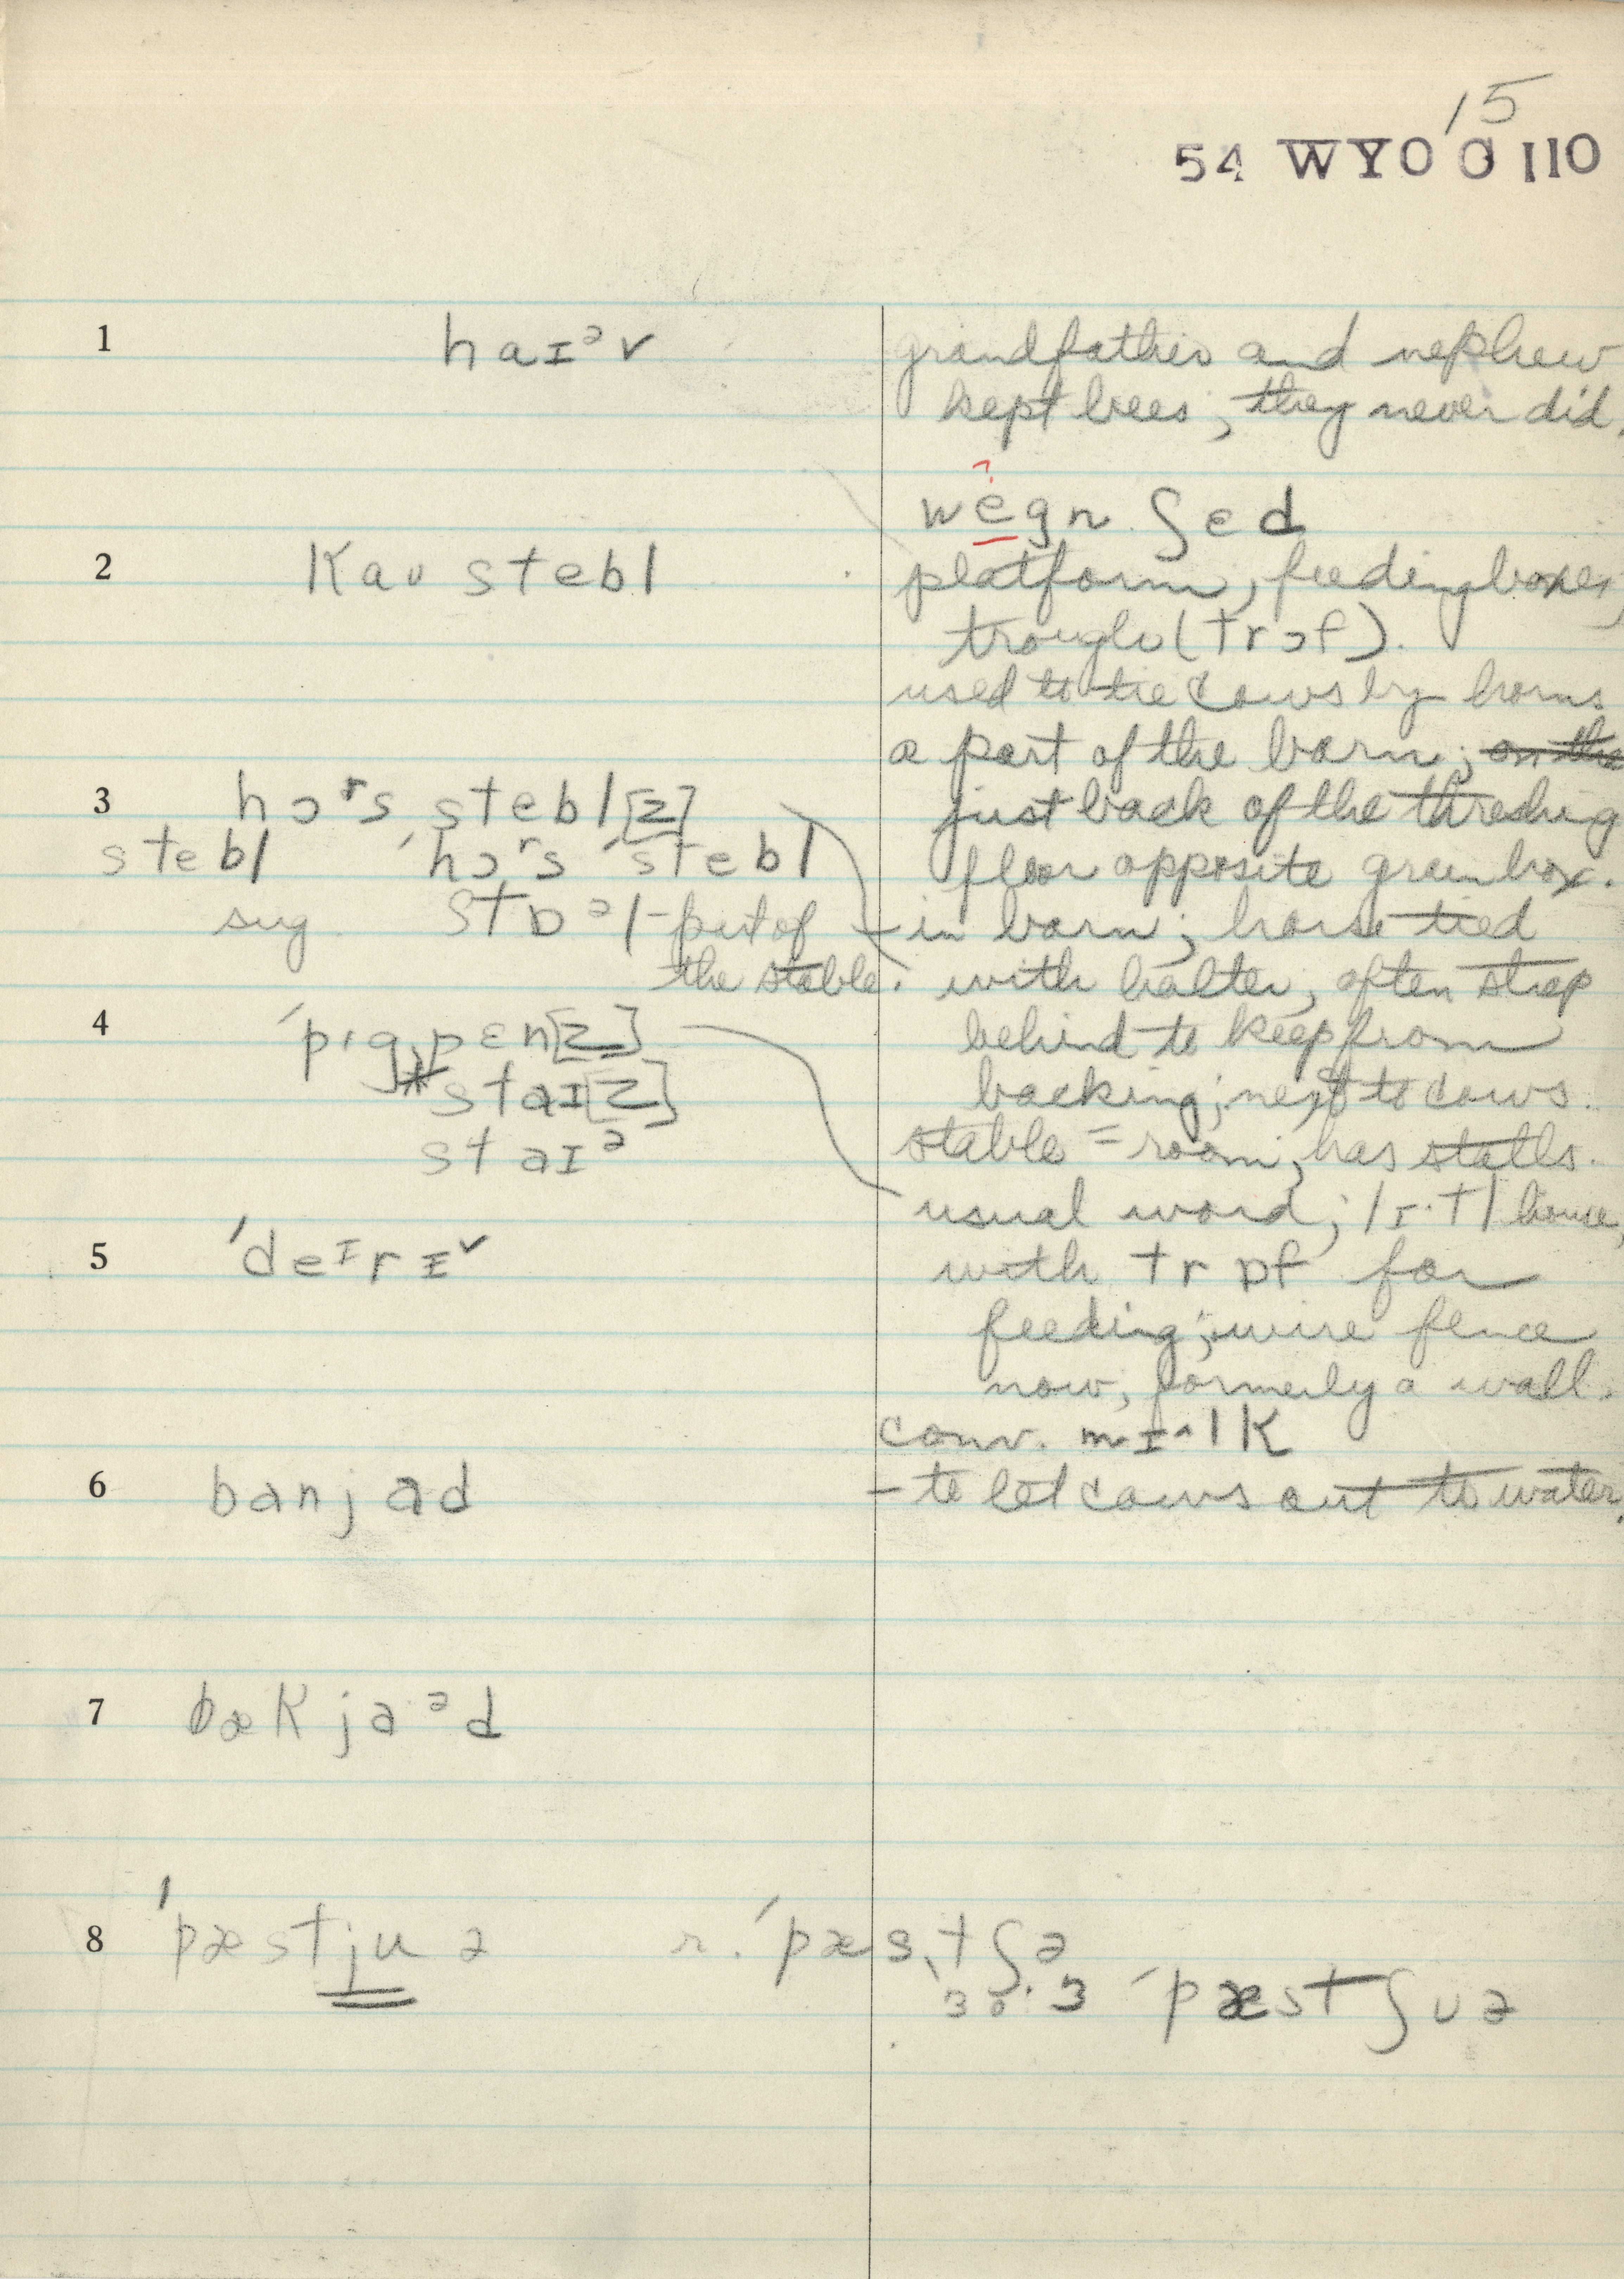 15
54 WYO G 110
1 haɪᵊv
grandfather and nephew
kept bees; they never did.
wegn ʃed
2 kaʊ stebl
platform, feeding boxes,
trough (trɔf).
used to tie cows by horns
a part of the barn; on the
3 hɔʳs stebl[z]
just back of the threshing
stebl ˈhɔʳs ˈstebl
floor opposite grain box.
sug. stɒᵊl - part of
the stable.
- in barn; horse tied
with halter, often strap
4 ˈpɪgˌpɛn[z]
behind to keep from
staɪ[z]
backing; next to cows.
staɪᵊ
stable = room, has stalls.
usual word; lɪ·tl house,
5 ˈdeᶦrɪ˅
with trɒf for
feeding; wire fence
now, formerly a wall.
conv. mɪ^lk
6 banjad
- to let cows out to water.
7 bækjaᵊd
8 ˈpæstjuə r. ˈpæs,tʃə
ˈpæstʃʊə